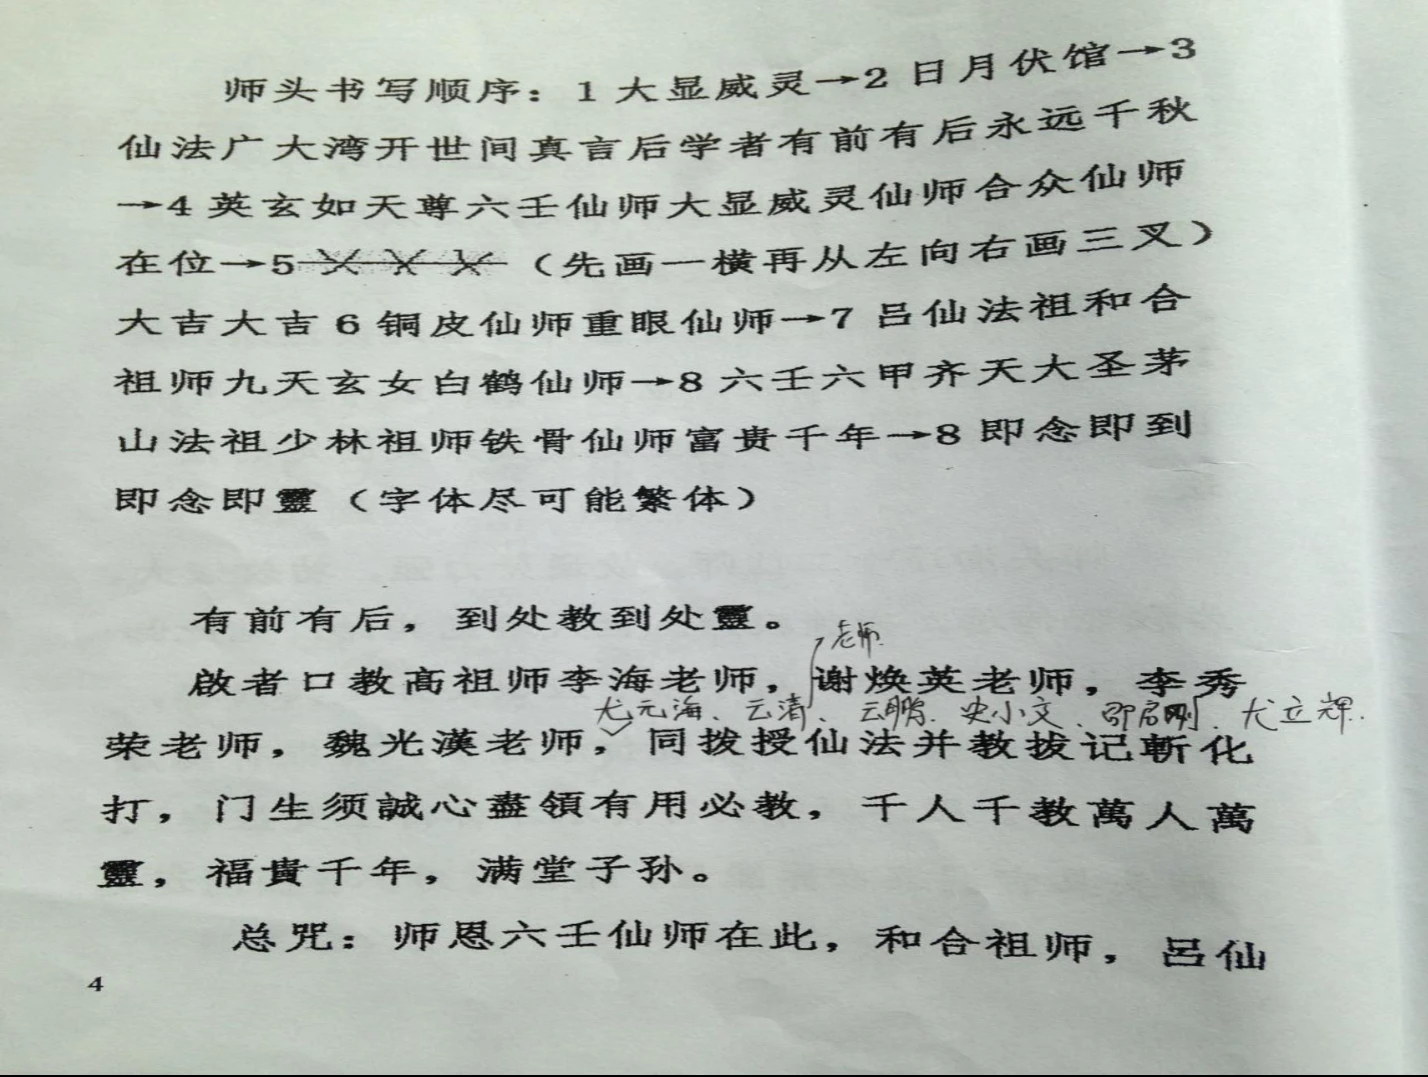 师头书写顺序：1 大显威灵→2 日月伏馆→3
仙法广大湾开世间真言后学者有前有后永远千秋
→4 英玄如天尊六壬仙师大显威灵仙师合众仙师
在位→5 （先画一横再从左向右画三叉）
大吉大吉 6 铜皮仙师重眼仙师→7 吕仙法祖和合
祖师九天玄女白鹤仙师→8 六壬六甲齐天大圣茅
山法祖少林祖师铁骨仙师富贵千年→8 即念即到
即念即靈（字体尽可能繁体）
有前有后，到处教到处靈。
老师
啟者口教高祖师李海老师，谢焕英老师，李秀
尤元海、云清、云鹏、史小文、邵启刚、尤立辉.
荣老师，魏光漢老师，同拨授仙法并教拔记斬化
打，门生须誠心盡領有用必教，千人千教萬人萬
靈，福貴千年，满堂子孙。
总咒：师恩六壬仙师在此，和合祖师，吕仙
4